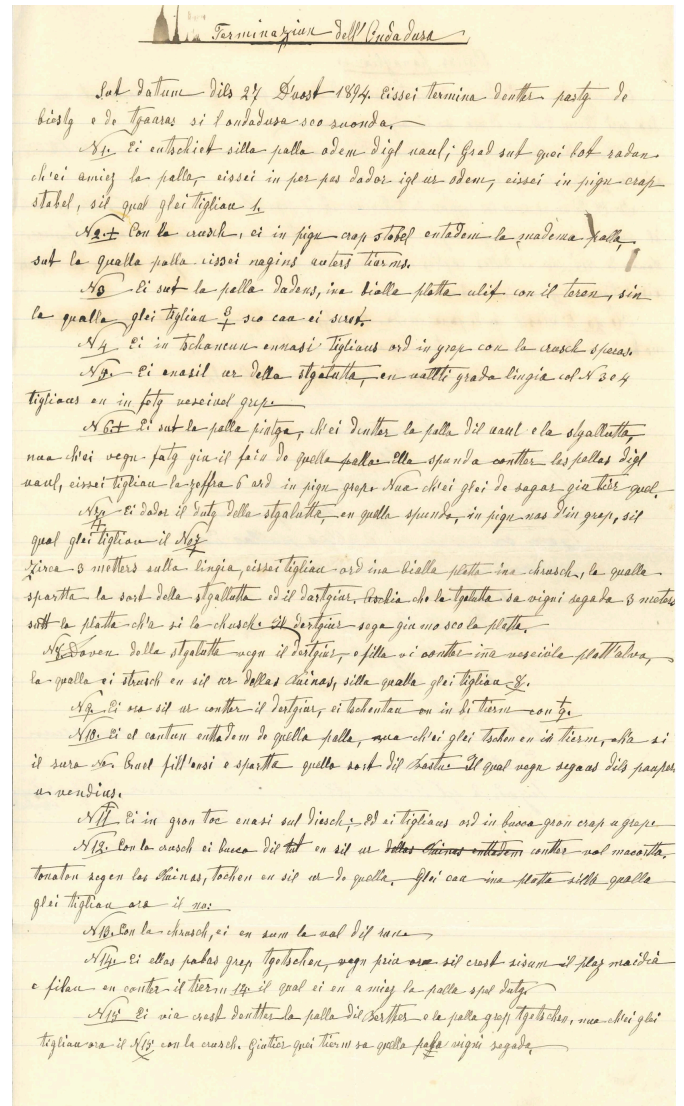 Terminaziun dell'Ondadusa
Sut datum dils 27 D'uost 1894. Eissei termina denter pastg de
biestg e de tgauras si l'ondadusa sco suonda.
N1. Ei entschiet silla palla odem digl uaul; Grad sut quei bot radun
ch'ei amiez la palla, eissei in per pas dador igl ur odem, eissei in pign crap
stabel, sil qual glei tigliau 1.
N2.+ Con la crusch, ei in pign crap stabel entadem la madema palla,
sut la qualla palla eissei nagins auters tierms.
N3 Ei sut la palla dadens, ina bialla platta ulif con il teren, sin
la qualla glei tigliau 3 + sco cau ei scret.
N4 Ei in tschancun ennasi tigliaus ord in grep con la crusch speras.
N5. Ei enasil ur della stgalutta, en vallti grada lingia col N 3 e 4
tigliaus en in fetg veseivel grep.
N6.+ Ei sut la palla pintga, ch'ei denter la palla dil uaul e la stgallutta,
nua ch'ei vegn fatg giu il fein de quella palla. Ella spunda contter las pallas digl
uaul, eissei tigliau la zeffra 6 ord in pign grep. Nua ch'ei glei de segar giu tier quel.
N7. + Ei dador il dutg della stgalutta, en quella spunda, in pign nas d'in grep, sil
qual glei tigliau il No 7 +
Zirca 3 metters sutta lingia, eissei tigliau ord ina bialla platta ina chrusch, la qualla
spartta la sort della stgallutta ed il dartgiur. Aschia che la tgalutta sa vigni segada 3 meters
sutt la platta ch'a si la chusch. Il dertgiur sega giu mo sco la platta.
N8. Daven della stgalutta vegn il dertgiur, e filla vi contter ina veseivla platt'alva,
la qualla ei strusch en sil ur dellas Ruinas, silla qualla glei tigliau 8.
N9. Ei ora sil ur contter il dertgiur, ei tschentau en in bi tierm con + 9.
N10. Ei el cantun enttadem de quella palla, nua ch'ei glei tschen en in tierm, cha si
il sura No. Quel fill'ensi e spartta quella sort dil Tostu. Il qual vegn segaus dils paupers
u vendius.
N11 Ei in gron toc enasi sul diesch; Ed ei tigliaus ord in bucca gron crap u grep.
N12. Con la crusch ei bucca dil tut en sil ur dellas Ruinas enttadem contter val macortta.
tonaton segen las Ruinas, tochen en sil ur de quella. Glei cau ina platta silla qualla
glei tigliau ora il no:
N13. Con la chrusch, ei en sum la val dil runs.
N14. Ei ellas palas grep tgetschen, vegn priu ora sil crest sisum il plaz maidià
e filau en conter il tierm 14. il qual ei en a miez la palla spel dutg.
N15 Ei via crest dentter la palla dil Certher e la palla grep tgetschen, nua ch'ei glei
tigliau ora il N15. con la crusch. Giutier quei tierm sa quella palla vigni segada.